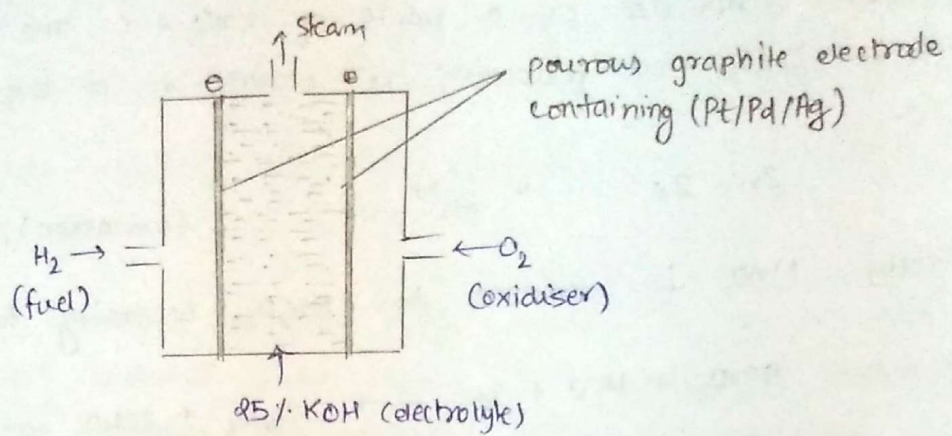 Steam
⊖ ⊕
pourous graphite electrode
containing (Pt/Pd/Ag)
H₂ →
(fuel)
← O₂
(oxidiser)
25% KOH (electrolyte)